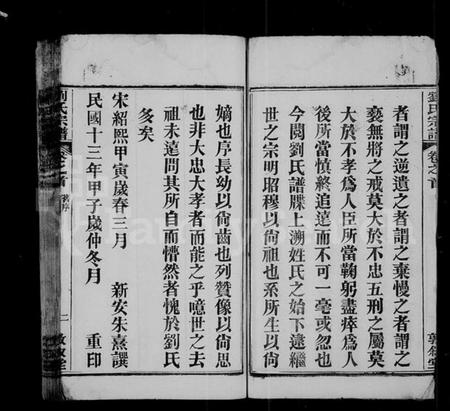 劉氏宗譜 卷之首
敦敘堂
者謂之逆遺之者謂之棄慢之者謂之
褻無將之戒莫大於不忠五刑之屬莫
大於不孝為人臣所當鞠躬盡瘁為人
後所當慎終追遠而不可一毫或忽也
今閱劉氏譜牒上溯姓氏之始下逮繼
世之宗明昭穆以尚祖也系所生以尚
嫡也序長幼以尚齒也列贊像以尚思
也非大忠大孝者而能之乎噫世之去
祖未遠問其所自而懵然者愧於劉氏
多矣
宋紹熙甲寅歲春三月 新安朱熹譔
民國十三年甲子歲仲冬月 重印
劉氏宗譜 卷之首 舊序 二 敦敘堂